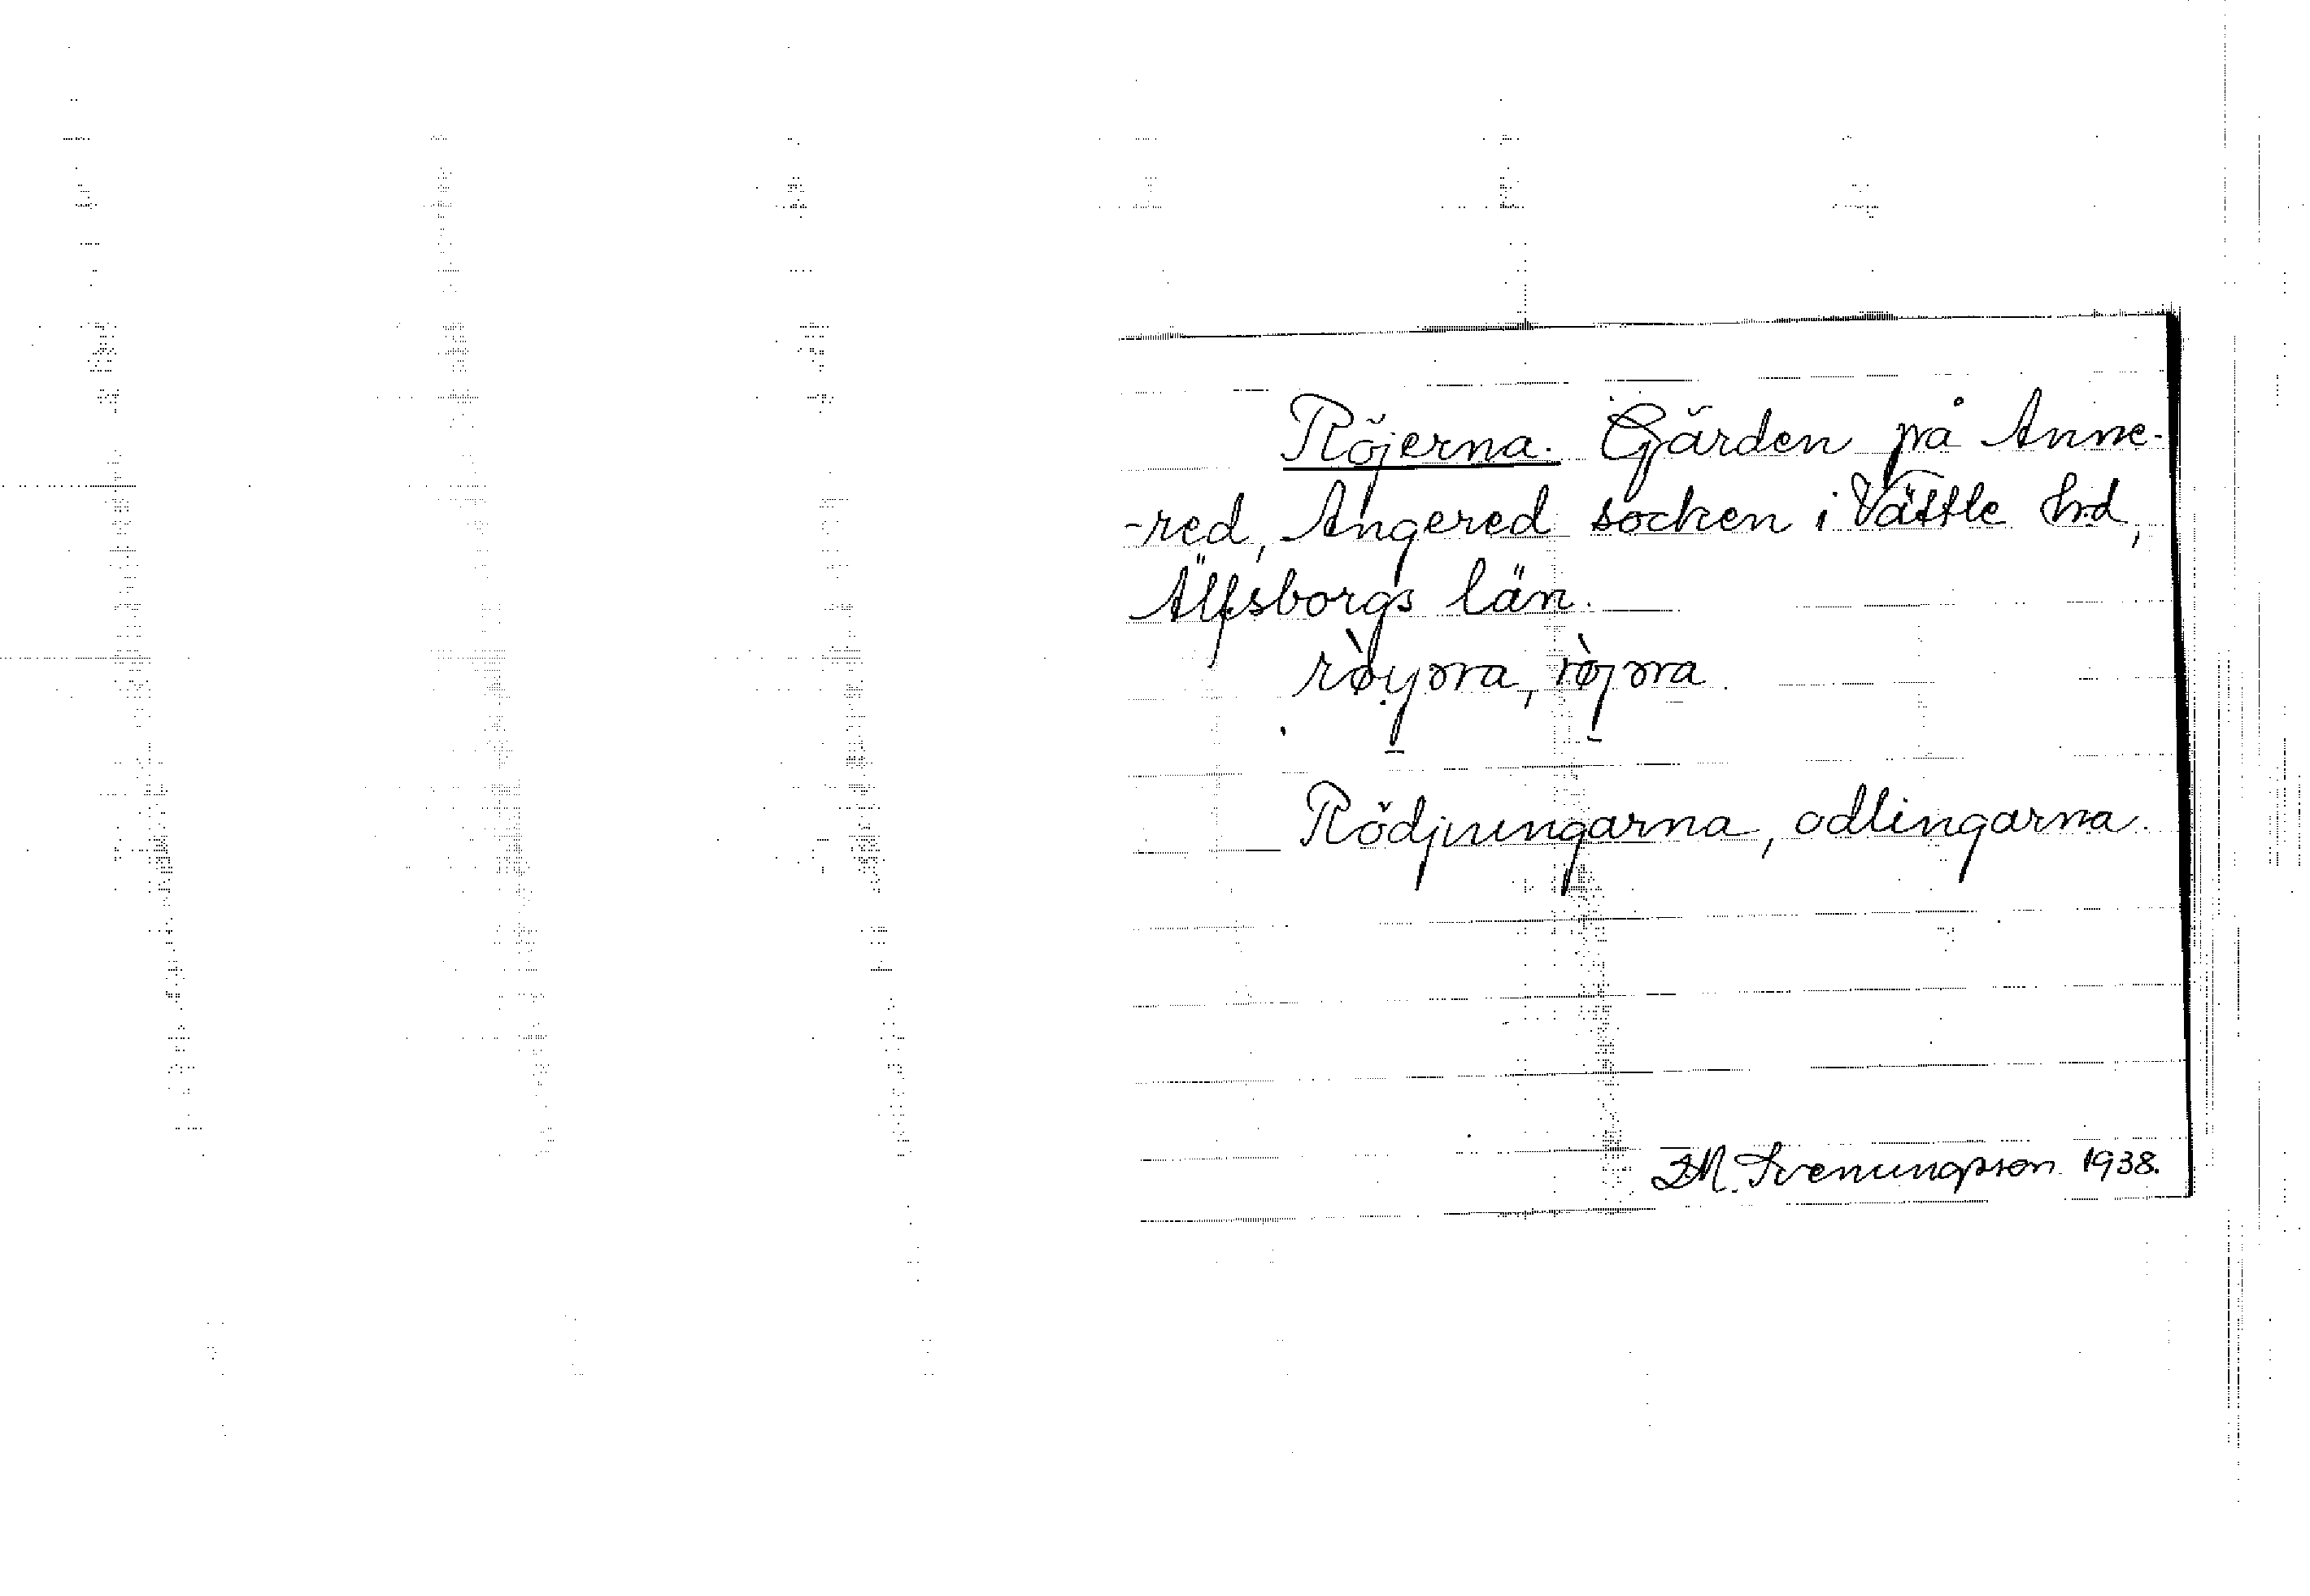 Röjerna. Gärden på Anne-
-red, Angered socken i Vättle hrd,
Älfsborgs län.
Rödjningarna, odlingarna.
J.M. Svenungsson 1938.